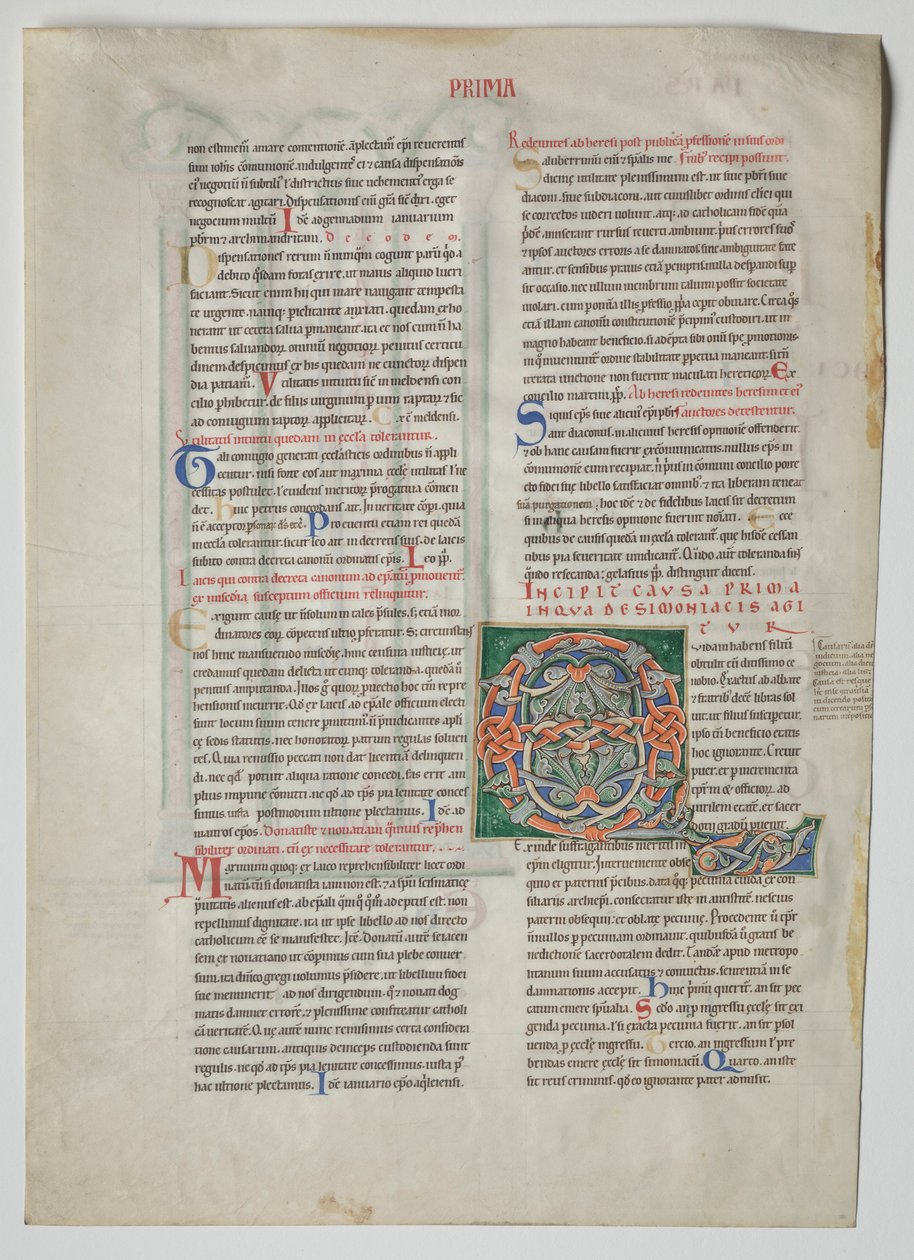 PRIMA
non estimem amare contentione. aplectam epi reverentis
debito qsdam foras exire. ut maius aliquid lucri
faciant. Sicut enim hii qui mare navigant tempesta
te urgente. navisq; periclitante anxiati. quedam exho
nerant ut cetera salva pmaneant. ita et nos cum n ha
bemus salvandoꝝ omniu negotioꝝ penitus certitu
dinem. despicimus ex his quedam ne cunctoꝝ dispen
dia patiam. Utilitatis intuitu sic in meldensi con
cilio phibetur. de filiis virginum p vim raptaꝝ & sic
ad coniugium raptoꝝ applicitaꝝ. Ex c meldensi.
Utilitatis intuitu quedam in eccla tolerantur.
Tali coniugio generati ecclasticis ordinibus n appli
centur. nisi forte eos aut maxima eccle utilitas l ne
cessitas postulet. l evidens meritoꝝ progativa comen
det. hinc petrus
Pro eventu etiam rei queda
in eccla tolerantur. sicut leo ait in decretis suis. de laicis
subito contra decreta canonu ordinatis epis. Leo pp.
Laicis qui contra decreta canonum ad epatu pmoventur.
ex misedia susceptum officium relinquitur.
Exigunt cause ut n solum in tales psules. s; etia in or
dinatores eoꝝ copetens ultio pferatur. S; circumstant
nos hinc mansuetudo misedie. hinc censura iusticie. ut
credamus quedam delicta ut cumq; toleranda. queda v
penitus amputanda. Illos g quoꝝ pvectio hoc tm repre
hensionis incurrit. qd ex laicis ad epale officium electi
sunt locum suum tenere pmittim. n piudicantes apli
ce sedis statutis. nec honoratoꝝ patrum regulas solven
tes. Quia remissio peccati non dat licentia delinquen
di. nec qd potuit aliqua ratione concedi. fas erit am
plius impune comitti. ne qd ad tps pia lenitate conces
simus. iusta postmodum ultione plectamus. Ide ad
mauros epos. Donatiste & novatiani qmvis rephen
sibilit ordinati. tn ex necessitate tolerantur.
Maximum quoq; ex laico reprehensibiliter licet ordi
natu. tn si donatista iam non est. & a spu scismatice
pvitatis alienus est. ab epali quoq qm adeptus est. non
repellimus dignitate. ita ut ipse libello ad nos directo
catholicum ee se manifestet. Ite. Donatu aute seiacen
sem. ex novatiano ut copimus cum sua plebe conver
sum. ita dnico gregi volumus psidere. ut libellum fidei
sue meminerit ad nos dirigendum. q & novati dog
matis damnet errore. & plenissime confiteatur catholi
ca veritate. Que aute nunc remisimus certa considera
tione causarum. antiquis deinceps custodienda sunt
regulis. ne qd ad tps pia lenitate concessimus. iusta p
hac ultione plectamus. Ide ianuario epo aqleiensi.
Redeuntes ab heresi post publica pfessione in suis ordi
nib; recipi possunt.
Saluberrimu eni & spalis me
dicine utilitate plenissimum est. ut sive pbri sive
diaconi. sive subdiaconi. aut cuiuslibet ordinis clerici qui
se correctos videri volunt. atq; ad catholicam fide qua
pde amiserant rursus reverti ambiunt. pus errores suos
& ipsos auctores erroris a se damnatos sine ambiguitate fate
antur. ut sensibus pravis etia pemptis. nulla despandi sup
sit occasio. nec ullum membrum talium possit societate
violari. cum p omnia illis pfessio ppa ceperit obviare. Circa qs
etia illam canonu constitutione pcipim custodiri. ut in
magno habeant beneficio. si adepta sibi omi spe pmotionis.
in q inveniunt ordine stabilitate ppetua maneant. si tn
iterata tinctione non fuerint maculati hereticoꝝ. Ex
concilio martini pp. Ab heresi redeuntes heresim et ei
auctores detestentur.
Siquis eps sive alicui epi pbr
aut diaconus. in alicuius heresis opinione offenderit.
& ob hanc causam fuerit excomunicatus. nullus eps in
comunione eum recipiat. n pus in comuni concilio porre
cto fidei sue libello satisfaciat omnib; & ita liberam teneat
sua purgationem. hoc ide & de fidelibus laicis sit decretum
si in aliqua heresis opinione fuerint noiati. Ecce
quibus de causis queda in eccla tolerantur. que hisde cessan
tibus pia severitate vindicant. Qndo aut toleranda sint
qndo resecanda. gelasius pp. distinguit dicens.
INCIPIT CAVSA PRIMA
INQVA DE SIMONIACIS AGI
TVR
Quidam habens filiu
obtulit eu ditissimo ce
nobio. Exactus ab abbate
& fratrib; dece libras sol
vit. ut filius susciperetur.
ipso tn beneficio etatis
hoc ignorante. Crevit
puer. et p incrementa
tpr m & officioꝝ. ad
virilem etate. et sacer
dotij gradu pvenit.
Exinde suffragantibus meritis in
epm eligitur. Interveniente obse
quio et paternis pcibus. data qq; pecunia cuida ex con
siliariis archiepi. consecratur iste in antistite. nescius
paterni obsequii. et oblate pecunie. Procedente v tpr
nnullos p pecuniam ordinavit. quibusda v gratis be
nedictione sacerdotalem dedit. Tande apud metropo
litanum suum accusatus & convictus. sententia in se
damnationis accepit. hinc pmu querit. an sit pec
catum emere spualia. Scdo. an p ingressu eccle sit exi
genda pecunia. l si exacta pecunia fuerit. an sit psol
venda p eccle ingressu. Tercio. an ingressum l pre
bendas emere eccle sit simoniacu. Quarto. an iste
sit reus criminis. qd eo ignorante pater admisit.